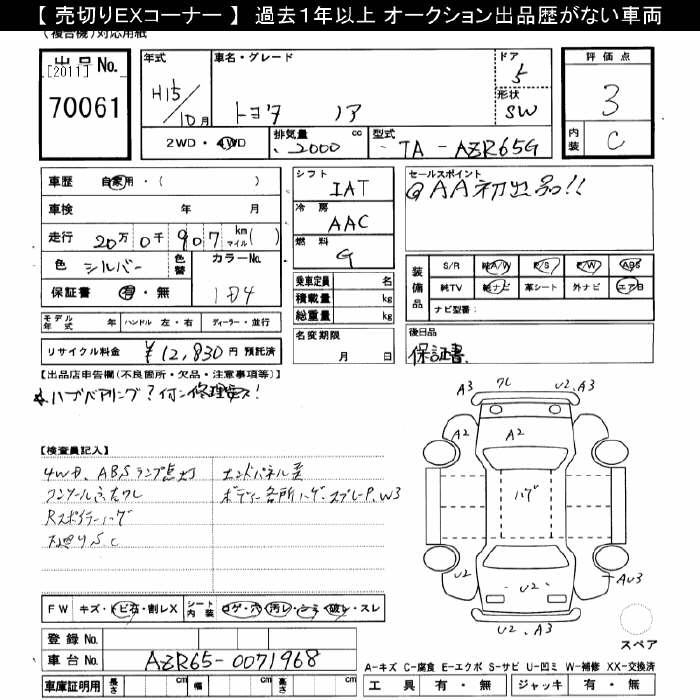 【 売切りEXコーナー 】 過去1年以上 オークション出品歴がない車両
(複合機)対応用紙
出品 No.
[2011]
70061
年式
H15/10月
車名・グレード
トヨタ ノア
ドア
5
形状
SW
評価点
3
内装
C
2WD・4WD
排気量 cc
2000
型式
TA - AZR65G
車歴 自家用・( )
車検 年 月
走行 20万 0千 907 km マイル( )
色 シルバー 色替 カラーNo.
1D4
保証書 有・無
モデル年式 年 ハンドル 左・右 ディーラー・並行
リサイクル料金 ¥12,830 円 預託済
シフト
IAT
冷房
AAC
燃料
G
乗車定員 名
積載量 kg
総重量 kg
名変期限
月 日
セールスポイント
AA初出品!!
装備品
S/R 純A/W P/S P/W ABS
純TV 純ナビ 革シート 外ナビ エアB
ナビ型番:
後日品
保証書
【出品店申告欄(不良箇所・欠品・注意事項等)】
ハブベアリング?
【検査員記入】
4WD、ABSランプ点灯
エンドパネル歪
コンソールふたワレ
ボディー各所ハゲ、スプレーP、W3
Rスポイラーハゲ
下廻りS、C
A3 ワレ U2、A3
A2 A2
ハゲ
U2 U2 AU3
U2、A3
スペア
FW キズ・トビ石・割レX シート内装 コゲ・穴 汚レ・シミ 破レ・スレ
登録 No.
車台 No. AZR65-0071968
車庫証明用 長さ cm 幅 cm 高さ cm
A-キズ C-腐食 E-エクボ S-サビ U-凹ミ W-補修 XX-交換済
工具 有・無 ジャッキ 有・無